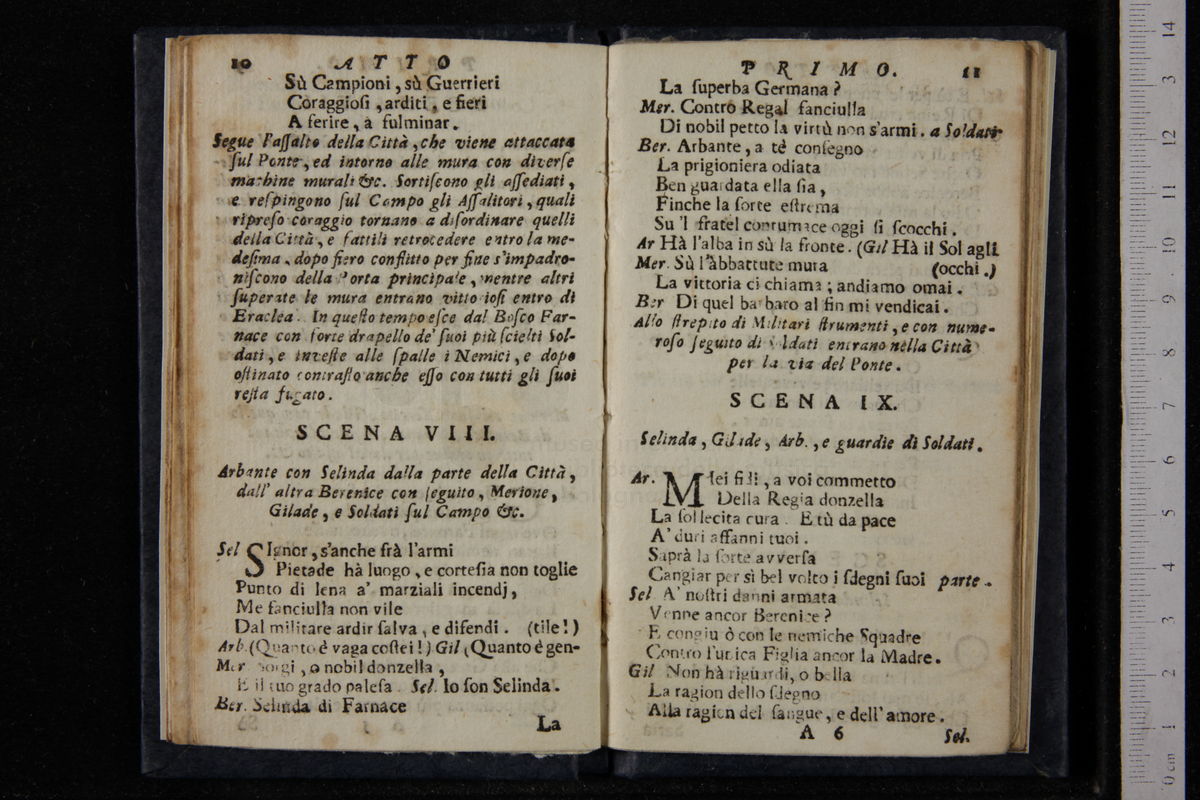 10 ATTO
Sù Campioni, sù Guerrieri
Coraggiosi, arditi, e fieri
A ferire, a fulminar.
Segue l'assalto della Città, che viene attaccata
sul Ponte, ed intorno alle mura con diverse
machine murali &c. Sortiscono gli assediati,
e respingono sul Campo gli Assalitori, quali
ripreso coraggio tornano a disordinare quelli
della Città, e fattili retrocedere entro la me-
desima, dopo fiero conflitto per fine s'impadro-
niscono della Porta principale, mentre altri
superate le mura entrano vittoriosi entro di
Eraclea. In questo tempo esce dal Bosco Far-
nace con forte drapello de' suoi più scielti Sol-
dati, e investe alle spalle i Nemici, e dopo
ostinato contrasto anche esso con tutti gli suoi
resta fugato.
SCENA VIII.
Arbante con Selinda dalla parte della Città,
dall' altra Berenice con seguito, Merione,
Gilade, e Soldati sul Campo &c.
Sel SIgnor, s'anche frà l'armi
Pietade hà luogo, e cortesia non toglie
Punto di lena a' marziali incendj,
Me fanciulla non vile
Dal militare ardir salva, e difendi. (tile!)
Arb. (Quanto è vaga costei!) Gil (Quanto è gen-
Mer Sorgi, o nobil donzella,
E il tuo grado palesa. Sel. Io son Selinda.
Ber. Selinda di Farnace
La
PRIMO. 11
La superba Germana?
Mer. Contro Regal fanciulla
Di nobil petto la virtù non s'armi. a Soldati
Ber. Arbante, a tè consegno
La prigioniera odiata
Ben guardata ella sia,
Finche la sorte estrema
Su 'l fratel contumace oggi si scocchi.
Ar Hà l'alba in sù la fronte. (Gil Hà il Sol agli
Mer. Sù l'abbattute mura (occhi.)
La vittoria ci chiama; andiamo omai.
Ber Di quel barbaro al fin mi vendicai.
Allo strepito di Militari strumenti, e con nume-
roso seguito di Soldati entrano nella Città
per la via del Ponte.
SCENA IX.
Selinda, Gilade, Arb., e guardie di Soldati.
Ar. MIei fidi, a voi commetto
Della Regia donzella
La sollecita cura. E tù da pace
A' duri affanni tuoi.
Saprà la sorte avversa
Cangiar per sì bel volto i sdegni suoi parte.
Sel A' nostri danni armata
Venne ancor Berenice?
E congiurò con le nemiche Squadre
Contro l'unica Figlia ancor la Madre.
Gil Non hà riguardi, o bella
La ragion dello sdegno
Alla ragion del sangue, e dell' amore.
A 6 Sel.